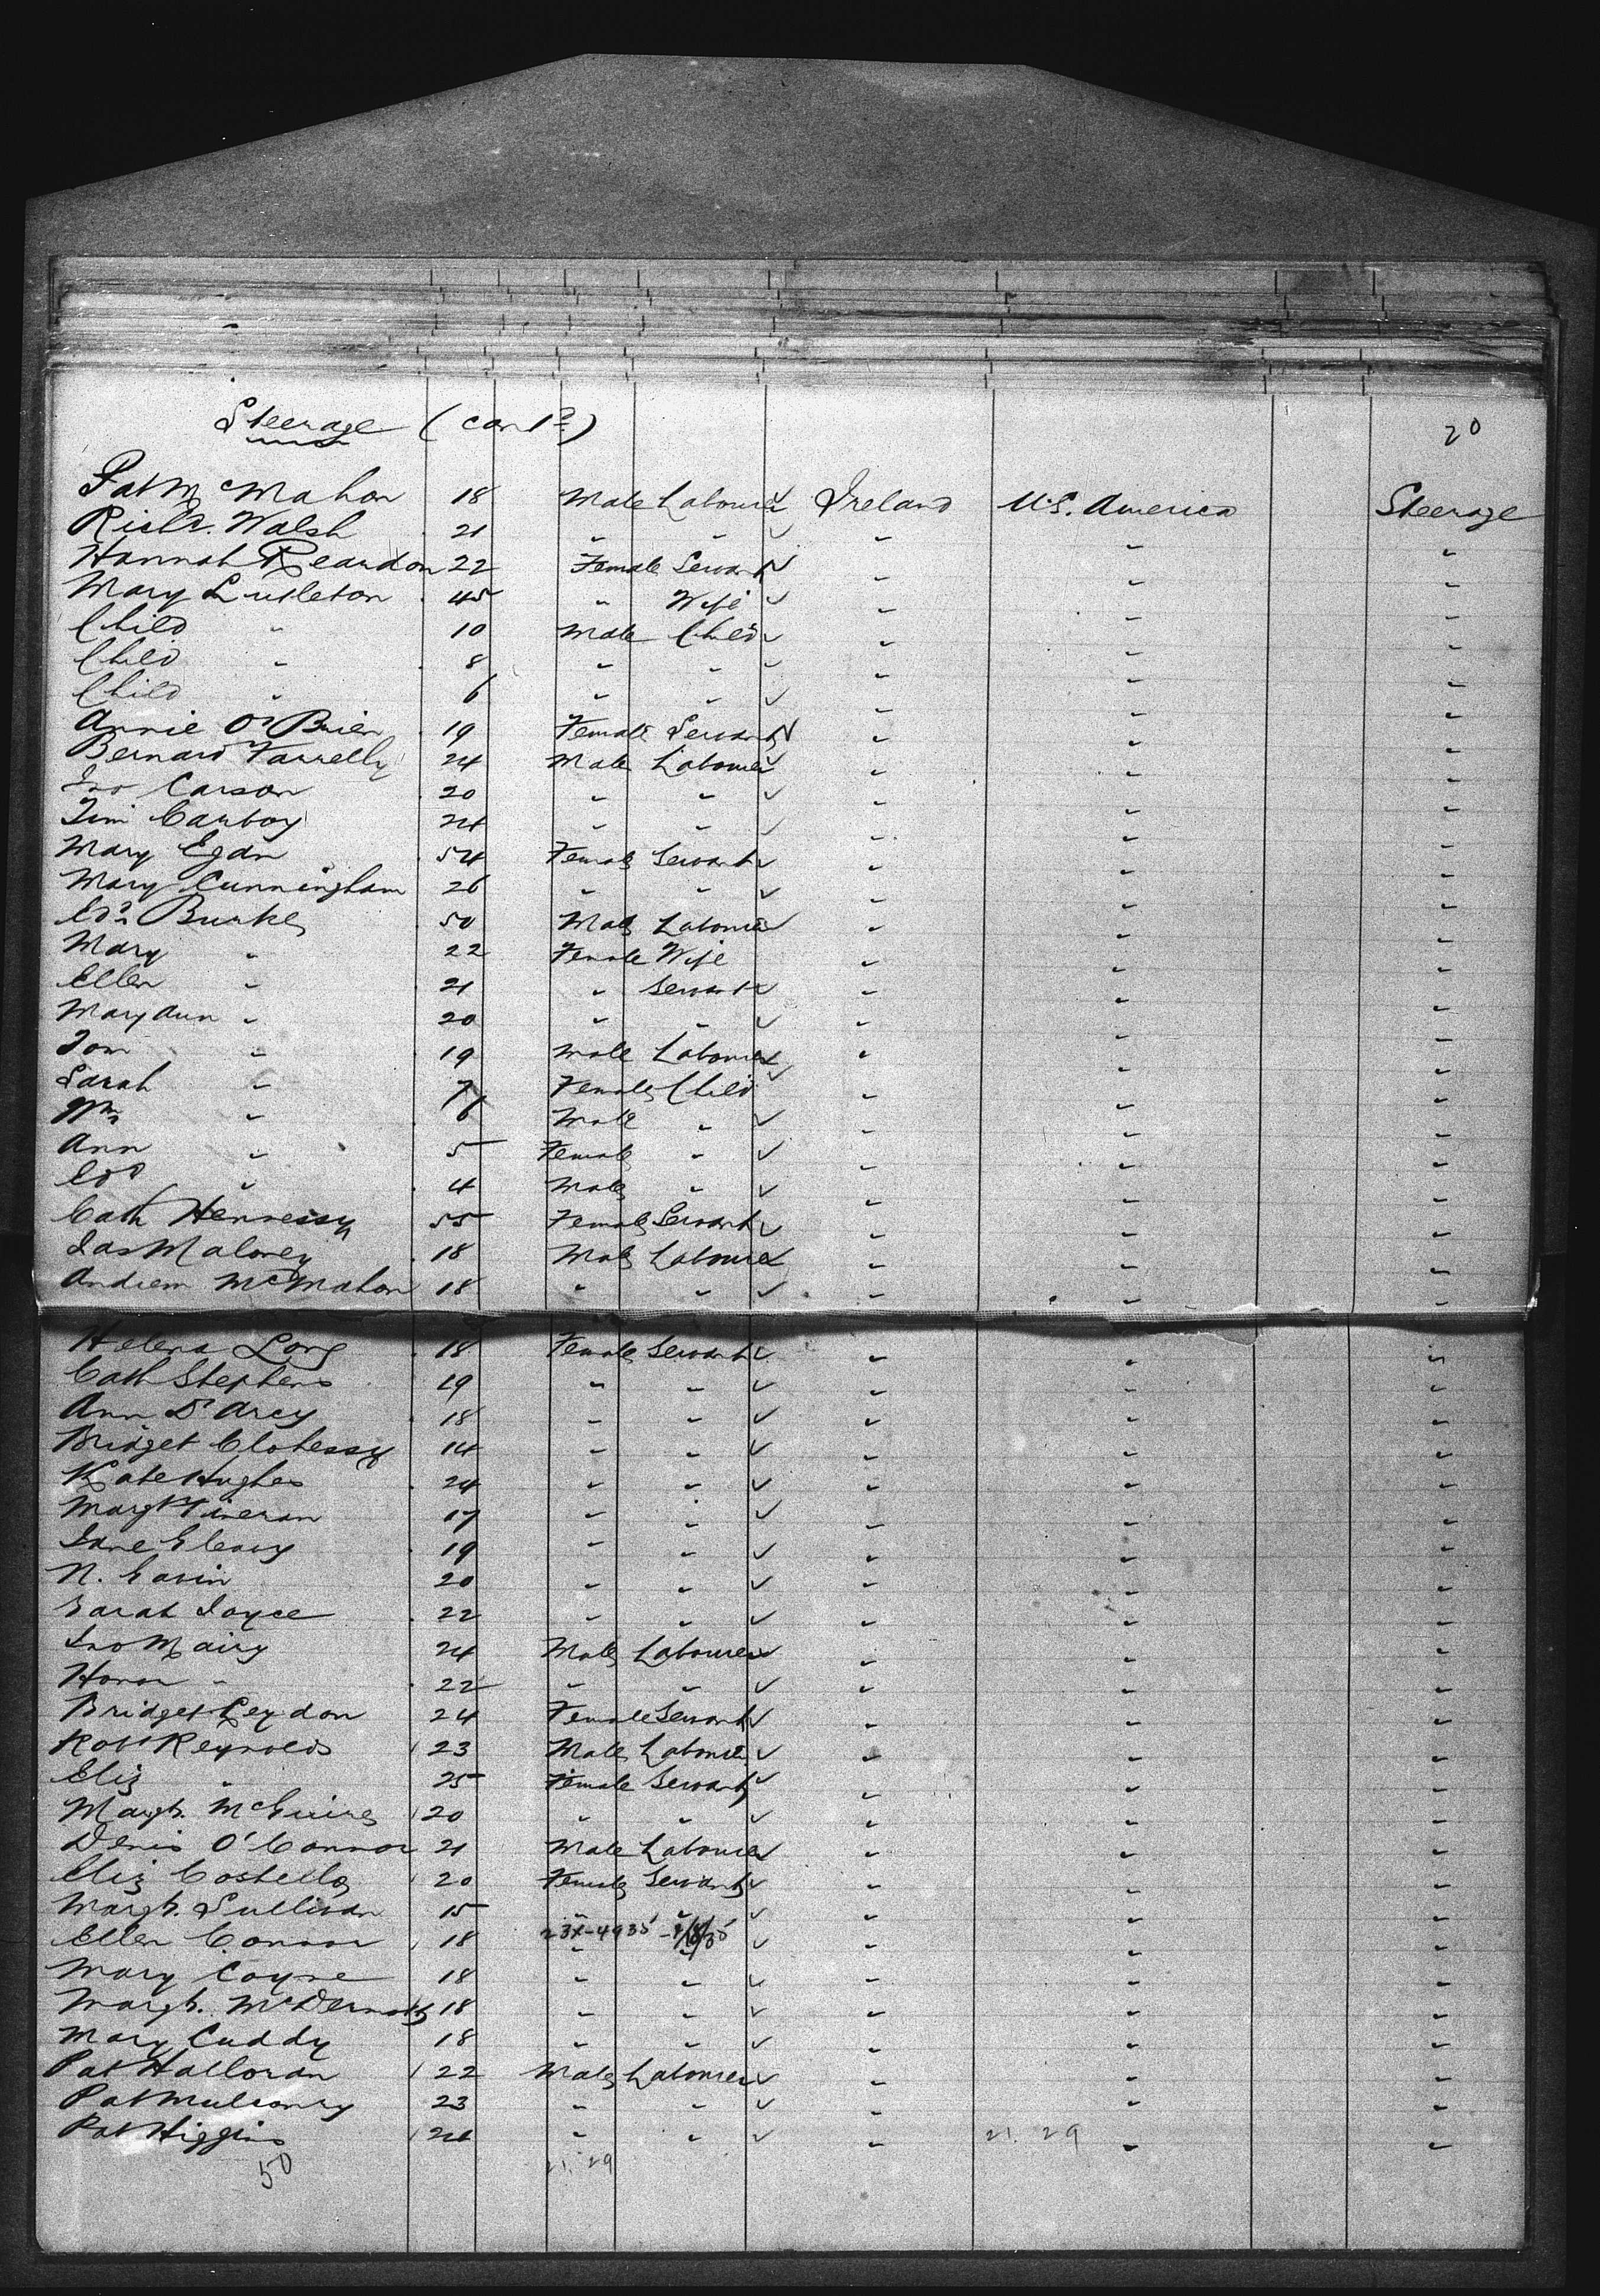 Steerage (cont'd)
20
Pat McMahon 18 Male Labourer Ireland U.S. America Steerage
Richd. Walsh 21 " " " " "
Hannah Reardon 22 Female Servant " " "
Mary Littleton 45 " Wife " " "
Child " 10 Male Child " " "
Child " 8 " " " " "
Child " 6 " " " " "
Annie O'Brien 19 Female Servant " " "
Bernard Farrelly 24 Male Labourer " " "
Jno Carson 20 " " " " "
Tim Carboy 24 " " " " "
Mary Egan 54 Female Servant " " "
Mary Cunningham 26 " " " " "
Edd Burke 50 Male Labourer " " "
Mary " 22 Female Wife " " "
Ellen " 21 " Servant " " "
Mary Ann " 20 " " " " "
Tom " 19 Male Labourer " " "
Sarah " 7 Female Child " " "
Wm " 6 Male " " " "
Ann " 5 Female " " " "
Edd " 4 Male " " " "
Cath Hennessy 55 Female Servant " " "
Jas Maloney 18 Male Labourer " " "
Andrew McMahon 18 " " " " "
Helena Long 18 Female Servant " " "
Cath Stephens 19 " " " " "
Ann D'Arcy 18 " " " " "
Bridget Clohessy 14 " " " " "
Kate Hughes 24 " " " " "
Margt 17 " " " " "
Jane Gleavy 19 " " " " "
N. Gavin 20 " " " " "
Sarah Joyce 22 " " " " "
Jno Mairy 24 Male Labourer " " "
Honor " 22 " " " " "
Bridget Leydon 24 Female Servant " " "
Robt Reynolds 23 Male Labourer " " "
Eliz " 25 Female Servant " " "
Margt. McGuire 20 " " " " "
Denis O'Connor 21 Male Labourer " " "
Eliz Costello 20 Female Servant " " "
Margt. Sullivan 15 " " " " "
23X-4935
Ellen Connor 18 " " " " "
Mary Coyne 18 " " " " "
Margt. McDermott 18 " " " " "
Mary Cuddy 18 " " " " "
Pat Halloran 22 Male Labourer " " "
Pat Mulrony 23 " " " " "
Pat Higgins 24 " " " " "
21. 29
50
21. 29